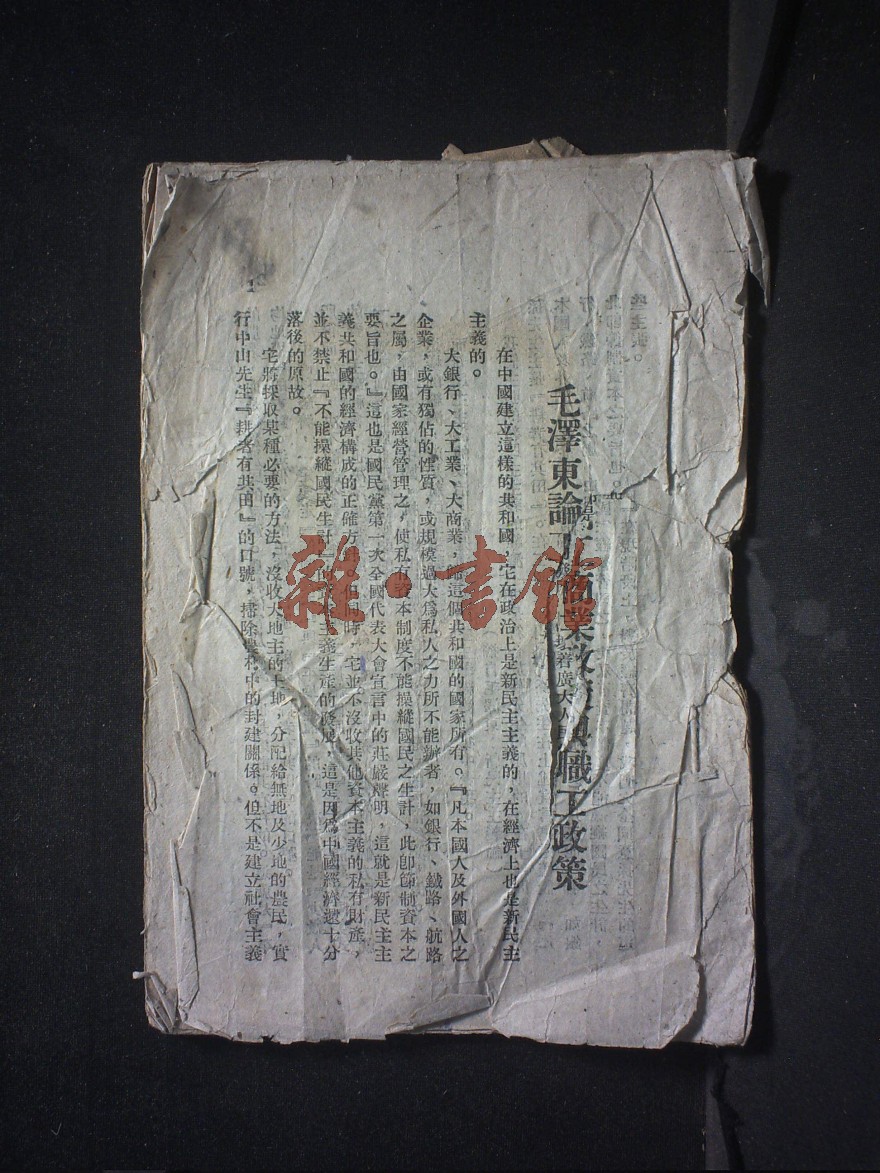 毛澤東論工商業政策與職工政策
在中國建立這樣的共和國,它在政治上是新民主主義的,在經濟上也是新民主
主義的。
大銀行、大工業、大商業,歸這個共和國的國家所有。『凡本國人及外國人之
企業,或有獨佔的性質,或規模過大為私人之力所不能辦者,如銀行、鐵路、航路
之屬,由國家經營管理之,使私有資本制度不能操縱國民之生計,此卽節制資本之
要旨也。』這也是國民黨第一次全國代表大會宣言中的莊嚴聲明,這就是新民主主
義共和國的經濟構成的正確方針。但同時,它並不沒收其他資本主義的私有財產,
並不禁止『不能操縱國民生計』的資本主義生產的發展,這是因為中國經濟還十分
落後的原故。
它將採取某種必要的方法,沒收大地主的土地,分配給無地及少地的農民,實
行中山先生『耕者有其田』的口號,掃除農村中的封建關係。但不是建立社會主義
雜·書館